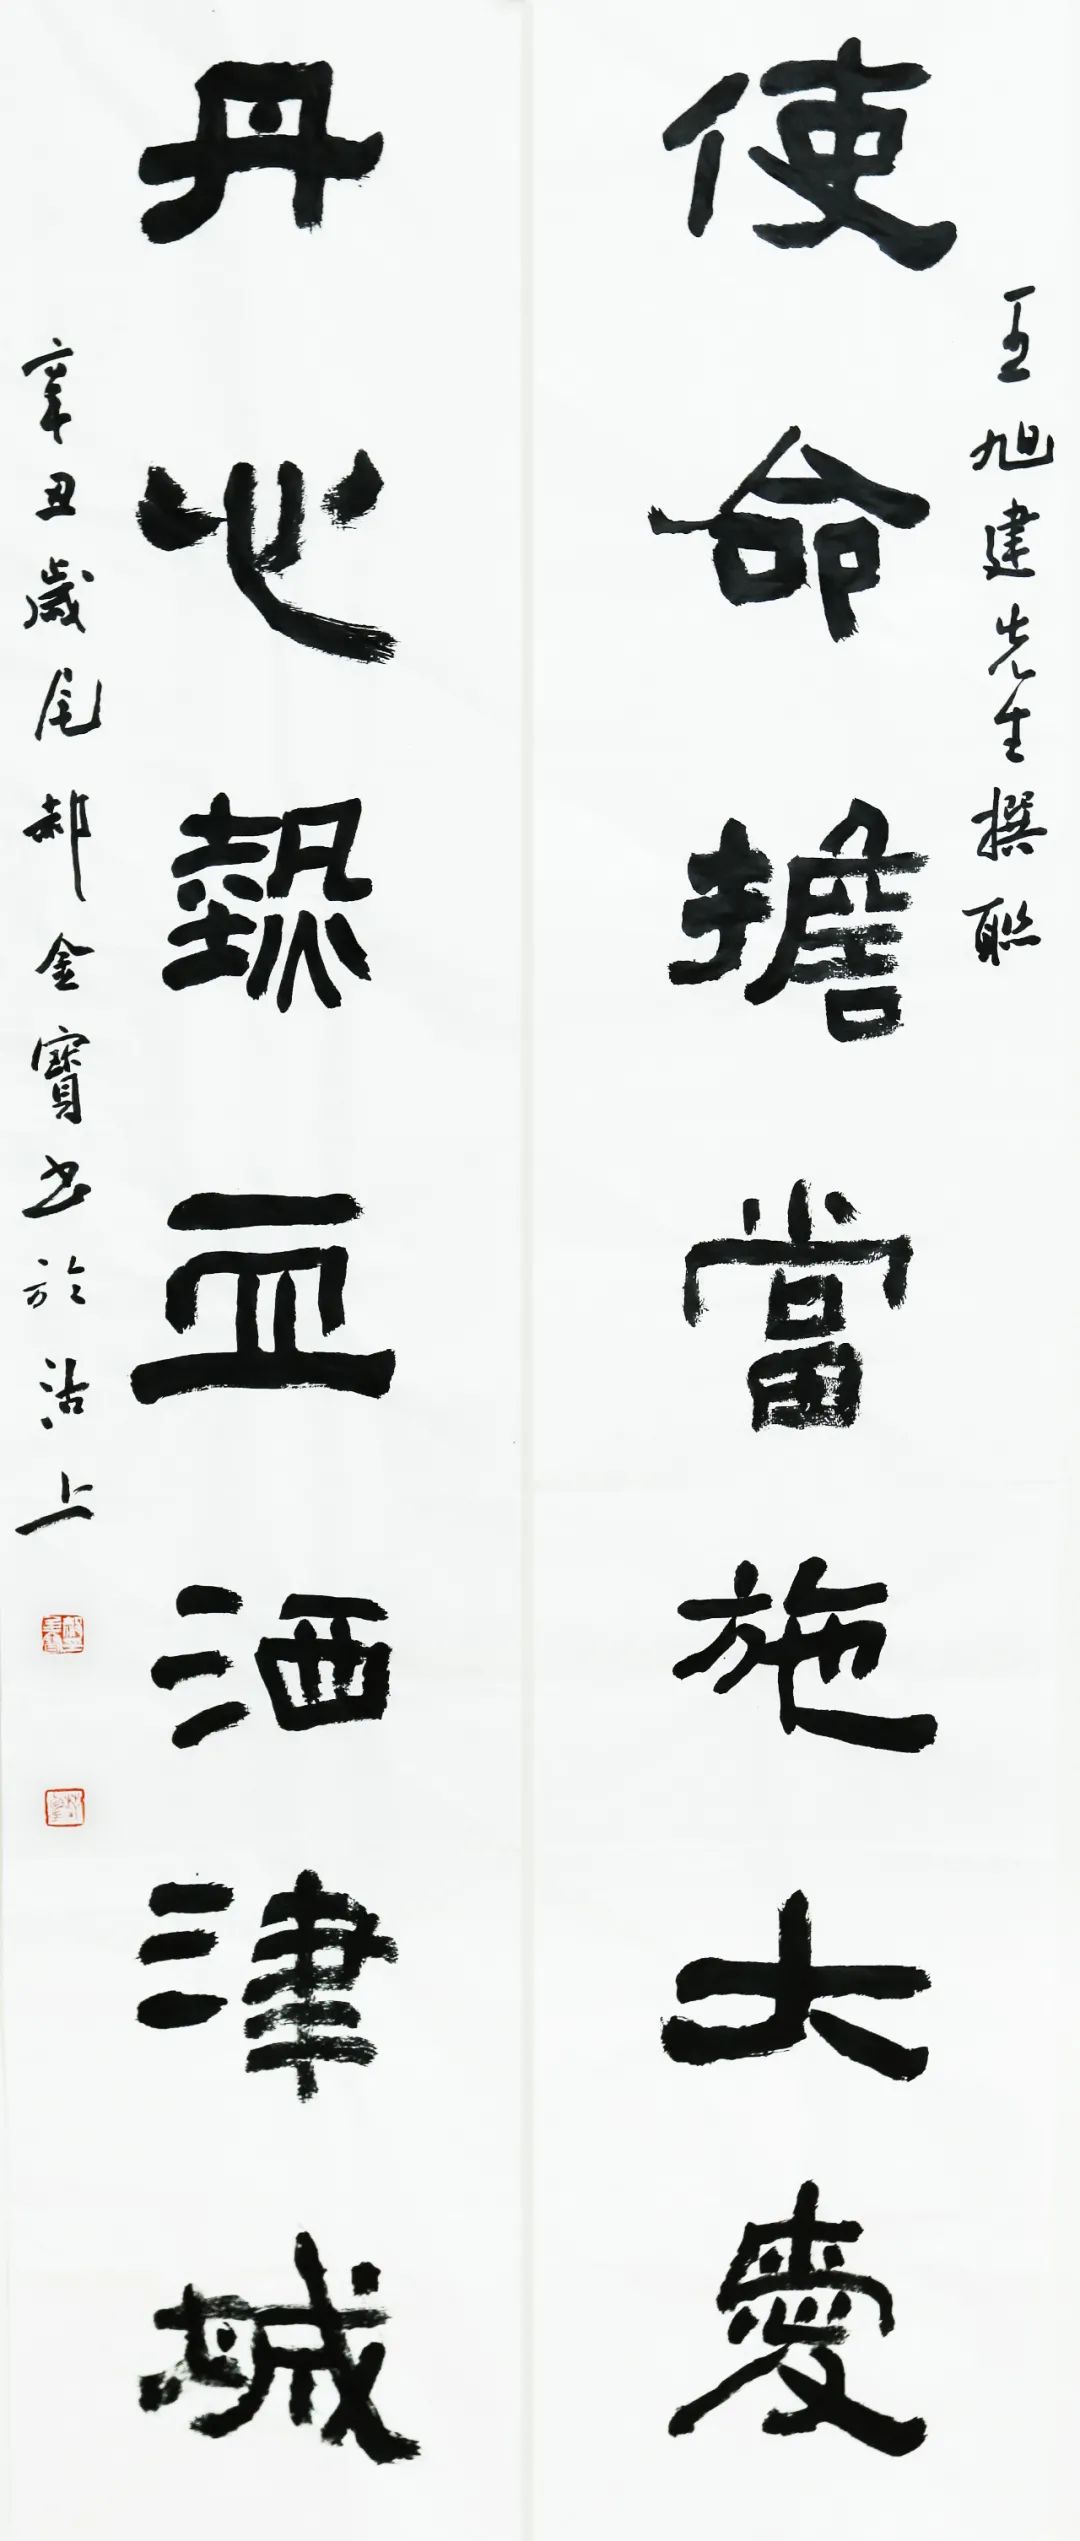 王旭建先生撰聯
使命擔當施大愛
丹心熱血洒津城
辛丑歲尾郝金寶书於沽上